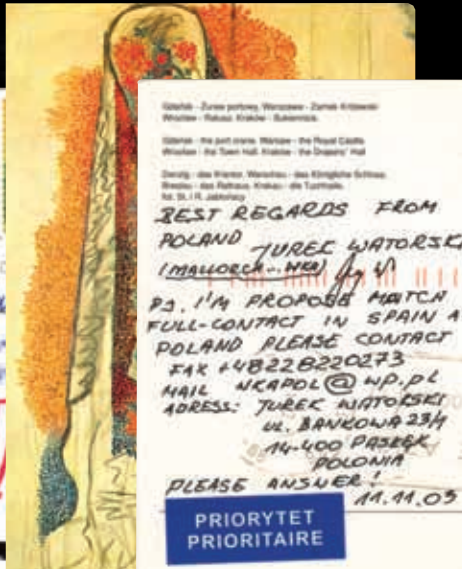 Gdańsk - Żuraw portowy, Warszawa - Zamek Królewski
Wrocław - Ratusz, Kraków - Sukiennice.
Gdańsk - the port crane, Warsaw - the Royal Castle
Wrocław - the Town Hall, Kraków - the Drapers' Hall
Danzig - das Krantor, Warschau - das Königliche Schloss,
Breslau - das Rathaus, Krakau - die Tuchhalle.
fot. St. i R. Jabłońscy
BEST REGARDS FROM
POLAND JUREK WATORSKI
(MALLORCA... WKA)
PS. I'M PROPOSE MATCH
FULL-CONTACT IN SPAIN A
POLAND PLEASE CONTACT
FAX +48228220273
MAIL WKAPOL@WP.PL
ADRESS: JUREK WATORSKI
UL. BANKOWA 23/4
14-400 PASŁĘK
POLONIA
PLEASE ANSWER!
11.11.05
PRIORYTET
PRIORITAIRE